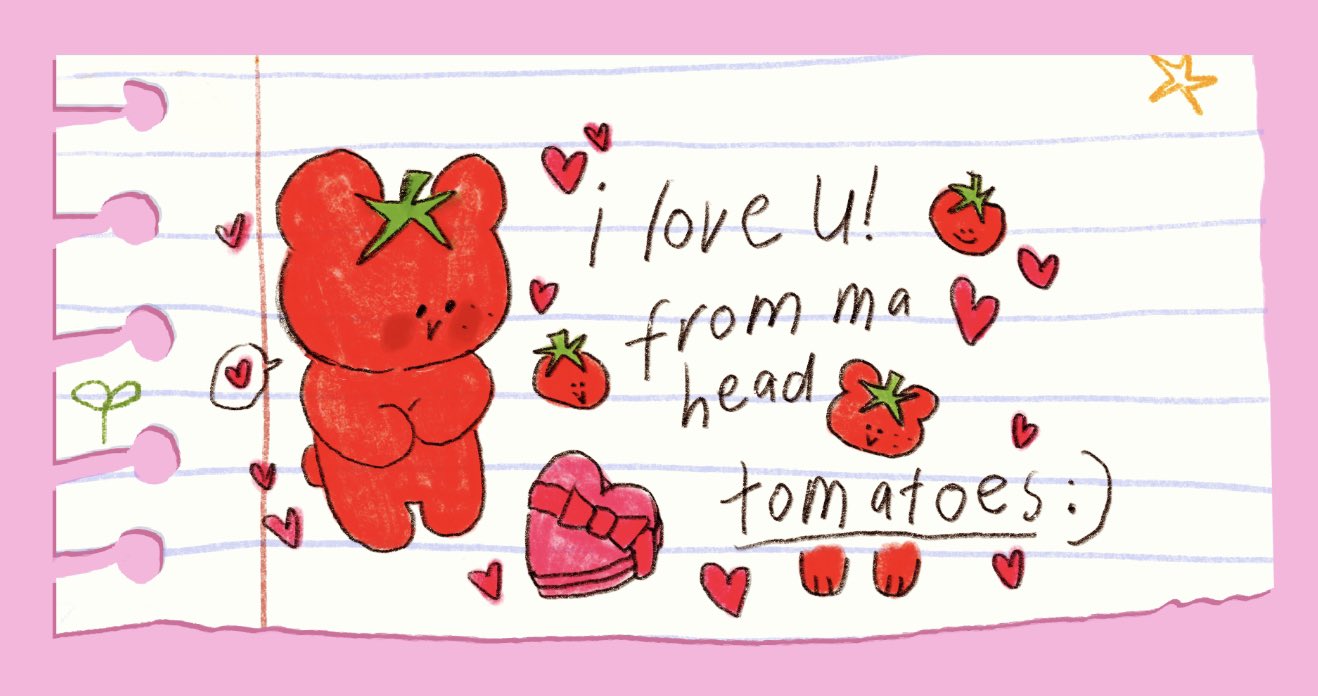 i love U!
from ma
head
tomatoes:)